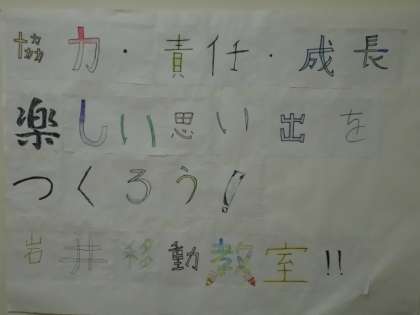 協力・責任・成長
楽しい思い出を
つくろう!
岩井移動教室!!